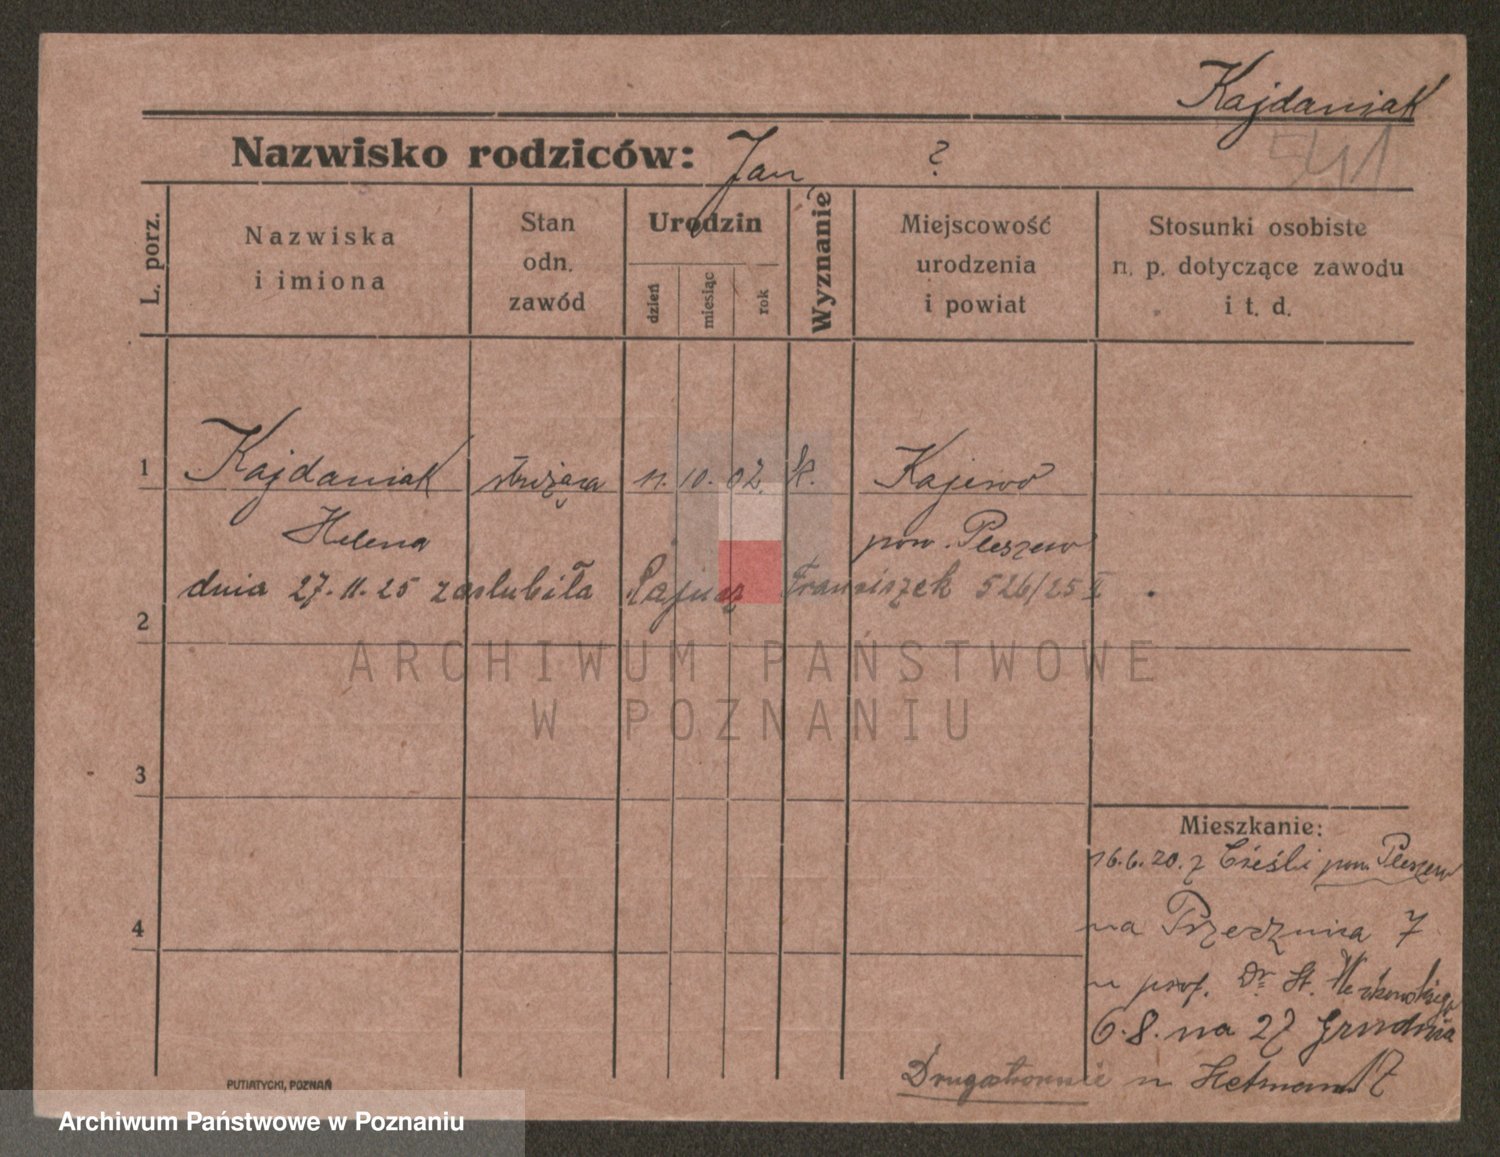 Kajdaniak
541
Nazwisko rodziców: Jan ?
L. porz.
Nazwiska
i imiona
Stan
odn.
zawód
Urodzin
dzień
miesiąc
rok
Wyznanie
Miejscowość
urodzenia
i powiat
Stosunki osobiste
n. p. dotyczące zawodu
i t. d.
1 Kajdaniak służąca 11. 10. 02. k. Kajewo
Helena pow. Pleszew
dnia 27.11.25 zaślubiła Franciszek 526/25 II.
2
ARCHIWUM PAŃSTWOWE
W POZNANIU
3
Mieszkanie:
16.6.20. z Cieśli pow. Pleszew
4
na Przecznica 7
u prof. Dr. St.
6.8. na 27 Grudnia
Drugostronnie
PUTIATYCKI, POZNAŃ
Archiwum Państwowe w Poznaniu